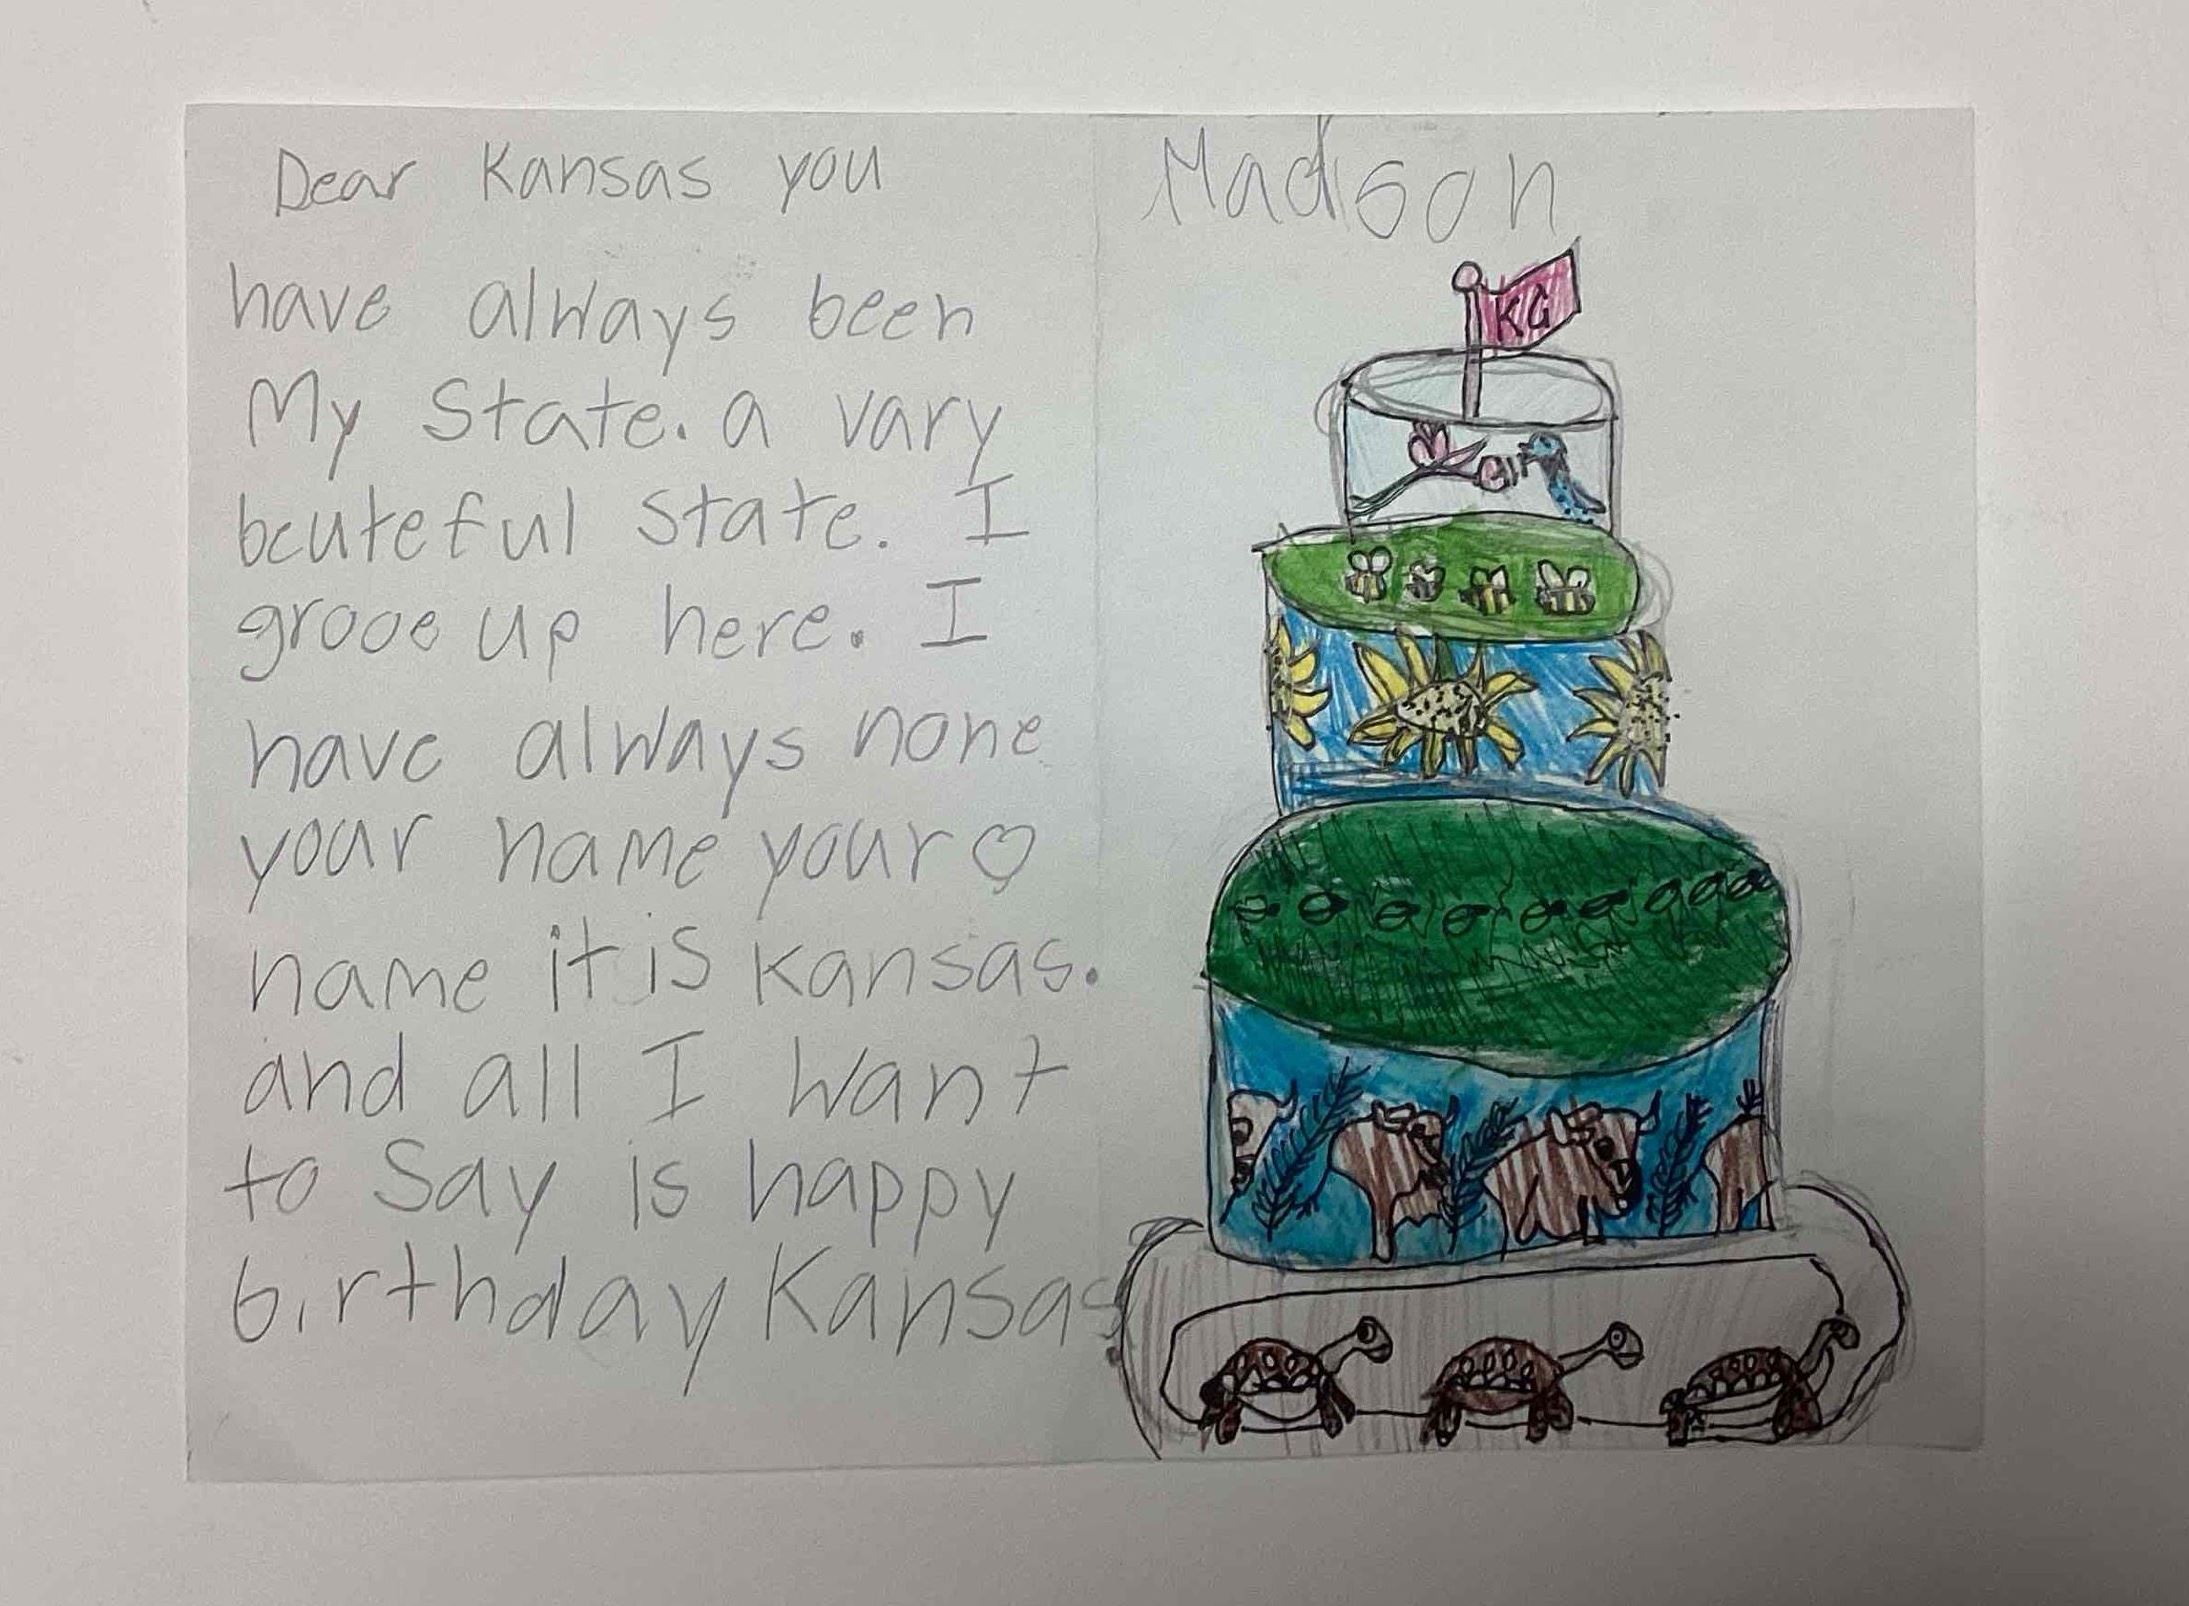 Dear Kansas you
have always been
My State. a vary
beuteful state. I
grooe up here. I
have always none
your name your ♡
name it is Kansas.
and all I want
to Say is happy
birthday Kansas.
Madison
KG